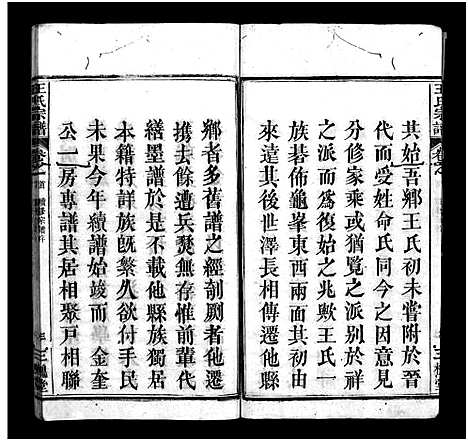 王氏宗譜
其始吾鄉王氏初未嘗附於晉
而受姓命氏同今之因意見
分修家乘或猶覽之派别於祥
之派而爲復始之兆歟王氏一
故址佈龜峯東西兩面其初由
來遠其後世澤長相傳當遷
鄉者多舊譜之經剞劂者他遷
携去餘遭兵燹無存惟前輩代
繕墨譜於是不載他縣族獨居
本籍特詳族旣繁久欲付手民
未果今年續譜始竣而　金奎
公一房專譜其居相聚戸相聯
王氏宗譜
卷之首
三槐堂